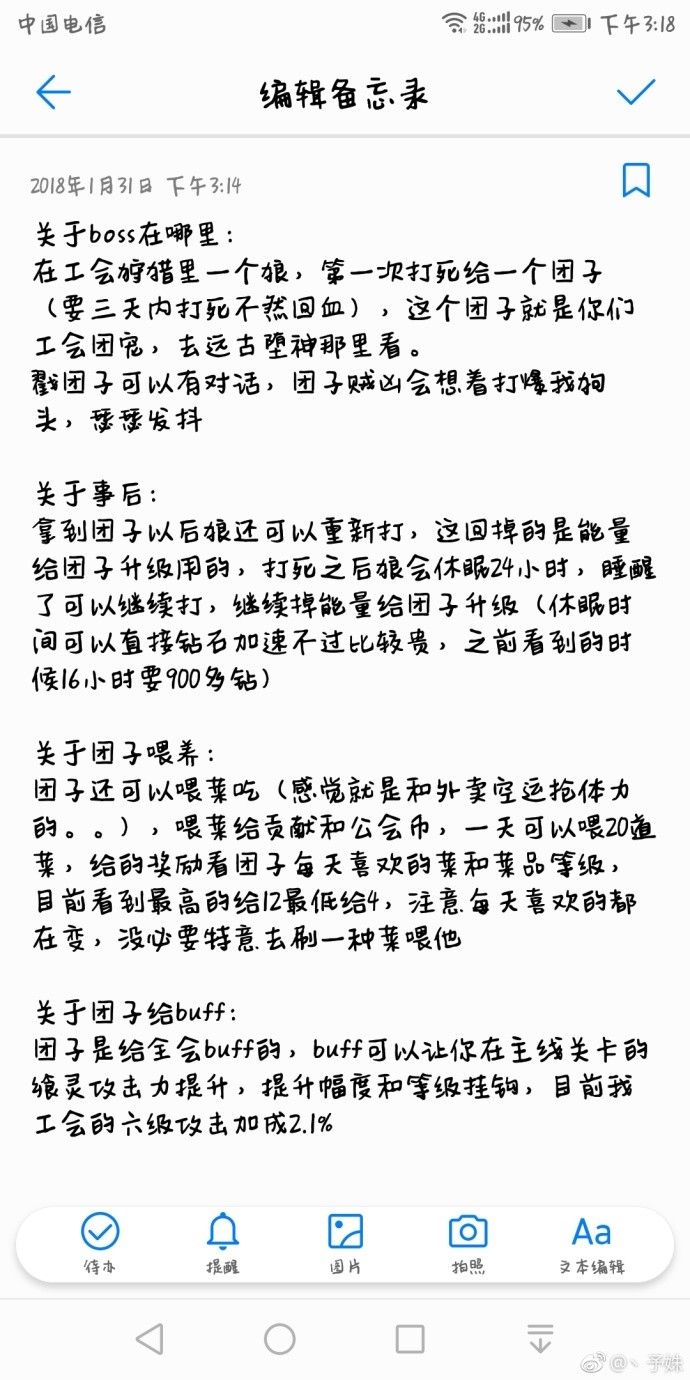 中国电信
4G
2G
95%
下午3:18
编辑备忘录
2018年1月31日 下午3:14
关于boss在哪里：
在工会狩猎里一个狼，第一次打死给一个团子
（要三天内打死不然回血），这个团子就是你们
工会团宠，去远古堕神那里看。
戳团子可以有对话，团子贼凶会想着打爆我狗
头，瑟瑟发抖
关于事后：
拿到团子以后狼还可以重新打，这回掉的是能量
给团子升级用的，打死之后狼会休眠24小时，睡醒
了可以继续打，继续掉能量给团子升级（休眠时
间可以直接钻石加速不过比较贵，之前看到的时
候16小时要900多钻）
关于团子喂养：
团子还可以喂菜吃（感觉就是和外卖空运抢体力
的。。），喂菜给贡献和公会币，一天可以喂20道
菜，给的奖励看团子每天喜欢的菜和菜品等级，
目前看到最高的给12最低给4，注意每天喜欢的都
在变，没必要特意去刷一种菜喂他
关于团子给buff：
团子是给全会buff的，buff可以让你在主线关卡的
飨灵攻击力提升，提升幅度和等级挂钩，目前我
工会的六级攻击加成2.1%
待办
提醒
图片
拍照
Aa
文本编辑
@丶予姝